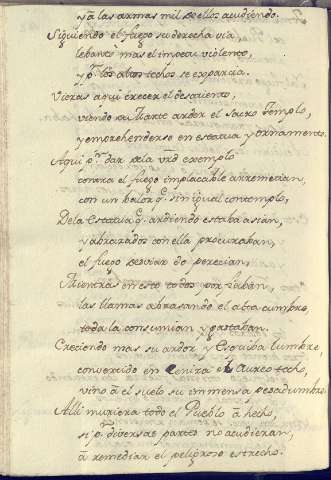 y á las armas mil de ellos acudiendo.
Siguiendo el fuego su derecha via
lebantó mas el impetu violento,
y pr. los altos techos se esparcia.
Vieras aqui crecer el desatiento,
viendo delante arder el Sacro Templo,
y emprehenderse en estatua y ornamento.
Aqui pr. dar de la vrd exemplo
contra el fuego implacable arremetian,
con un balor q. sin igual contemplo,
De la Estatua q. ardiendo estaba asian,
y abrazados con ella procuraban,
el fuego desviar do perecian,
Mientras en esto todos trabajaban,
las llamas abrasando el alta cumbre,
toda la consumian y gastaban.
Creciendo mas su ardor y Esquiba lumbre,
convertido en Ceniza el Aureo techo,
vino á el suelo su immensa pesadumbre.
Alli muriera todo el Pueblo á hecho,
si pr. diversas partes no acudieran,
á remediar el peligroso estrecho.